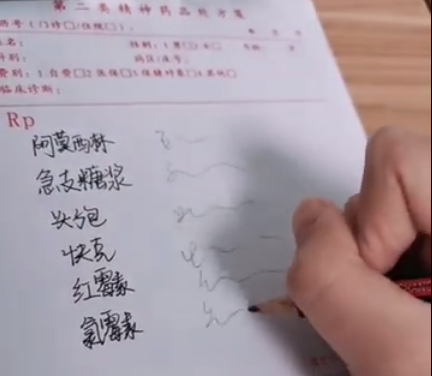 第二类精神药品处方
年 月 日
姓名: 性别:1.男□/女□ 年龄:
科别: 病区/床号:
费别:1.自费□2.医保□3.保健对象□4.其他□
临床诊断:
Rp
阿莫西林
急支糖浆
头孢
快克
红霉素
氯霉素